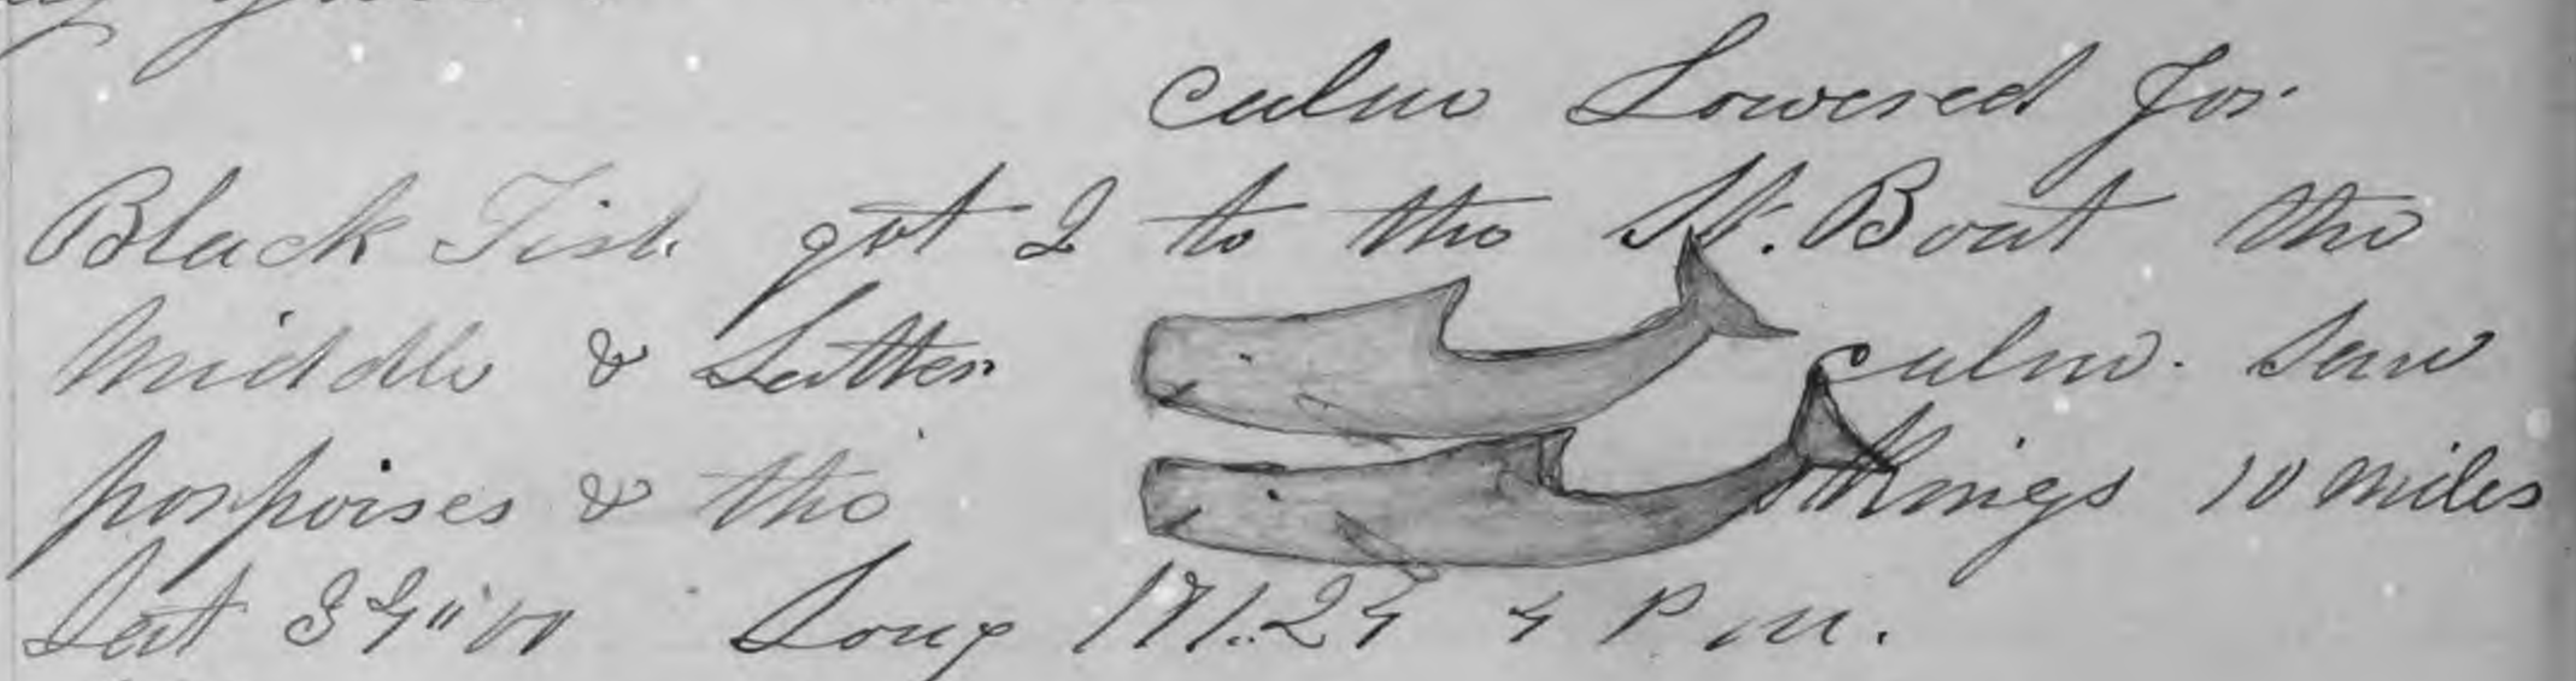 calm Lowered for
Black Fish got 2 to the St. Boat the
Middle & Latter calm. Saw
porpoises & the Kings 10 miles
Lat 34"10 Long 171..24 4 P M.